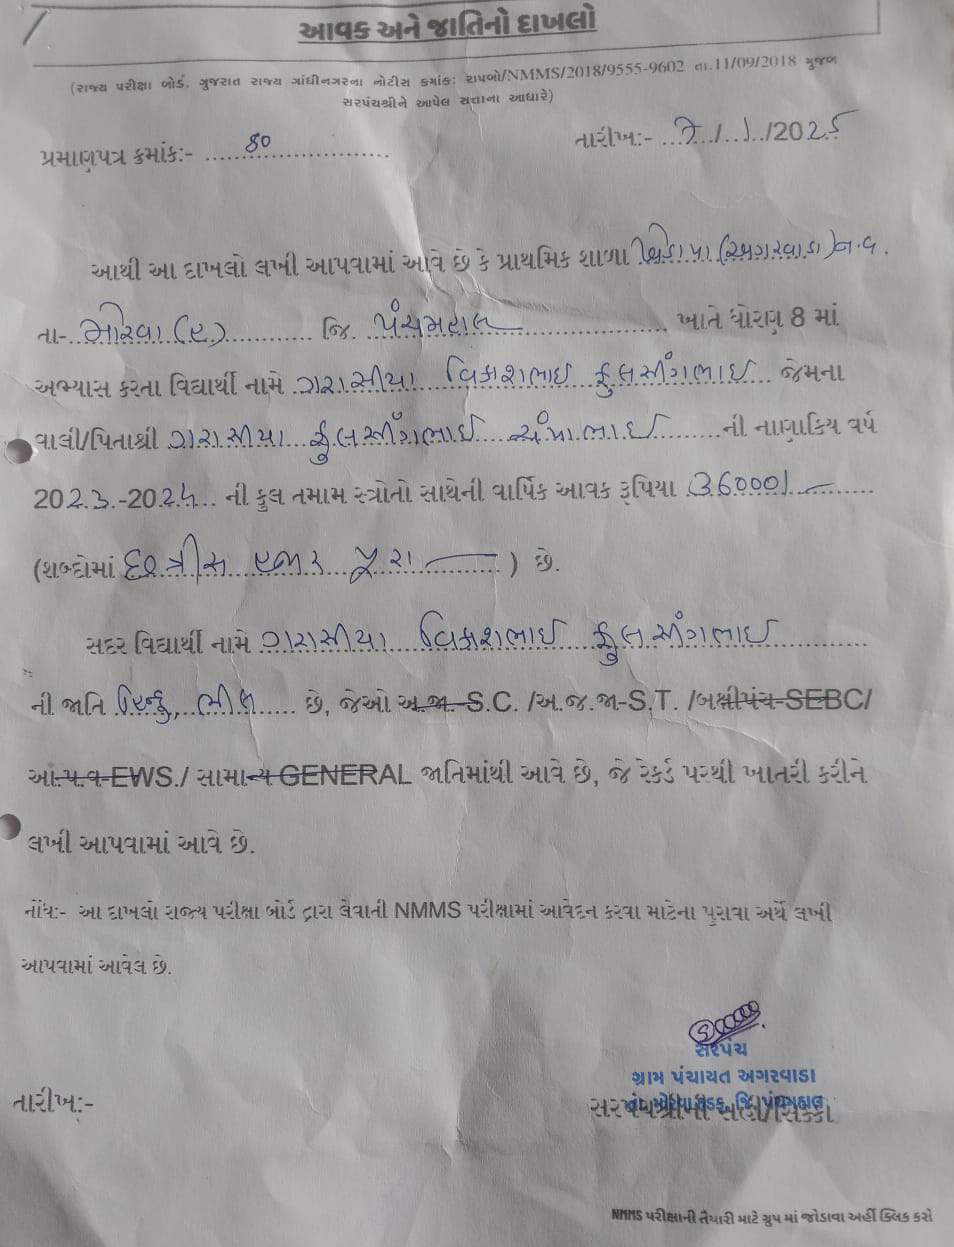 આવક અને જાતિનો દાખલો
(રાજ્ય પરીક્ષા બોર્ડ, ગુજરાત રાજ્ય ગાંધીનગરના નોટીસ ક્રમાંક: રાપબો/NMMS/2018/9555-9602 તા.11/09/2018 મુજબ
સરપંચશ્રીને આપેલ સત્તાના આધારે)
તારીખ:- 7/1/2025
પ્રમાણપત્ર ક્રમાંક:- 40
આથી આ દાખલો લખી આપવામાં આવે છે કે પ્રાથમિક શાળા (અગરવાડા) ન.વ.
તા- મોરવા (હ) જિ. પંચમહાલ ખાતે ધોરણ 8 માં
અભ્યાસ કરતા વિદ્યાર્થી નામે ગરાસીયા વિકાશભાઈ ફુલસીંગભાઈ જેમના
વાલી/પિતાશ્રી ગરાસીયા ફુલસીંગભાઈ ચંપાભાઈ ની નાણાકિય વર્ષ
2023-2024 ની કુલ તમામ સ્ત્રોતો સાથેની વાર્ષિક આવક રૂપિયા 36000/-
(શબ્દોમાં છત્રીસ હજાર પુરા ) છે.
સદર વિદ્યાર્થી નામે ગરાસીયા વિકાશભાઈ ફુલસીંગભાઈ
ની જાતિ હિન્દુ, ભીલ છે, જેઓ અ.જા.-S.C. /અ.જ.જા-S.T. /બક્ષીપંચ-SEBC/
આં.પ.વ-EWS./ સામાન્ય GENERAL જાતિમાંથી આવે છે, જે રેકર્ડ પરથી ખાતરી કરીને
લખી આપવામાં આવે છે.
નોંધ:- આ દાખલો રાજ્ય પરીક્ષા બોર્ડ દ્વારા લેવાતી NMMS પરીક્ષામાં આવેદન કરવા માટેના પુરાવા અર્થે લખી
આપવામાં આવેલ છે.
સરપંચ
ગ્રામ પંચાયત અગરવાડા
તારીખ:-
સરપંચશ્રીની સહી/સિક્કો
NMMS પરીક્ષાની તૈયારી માટે ગ્રુપ માં જોડાવા અહીં ક્લિક કરો